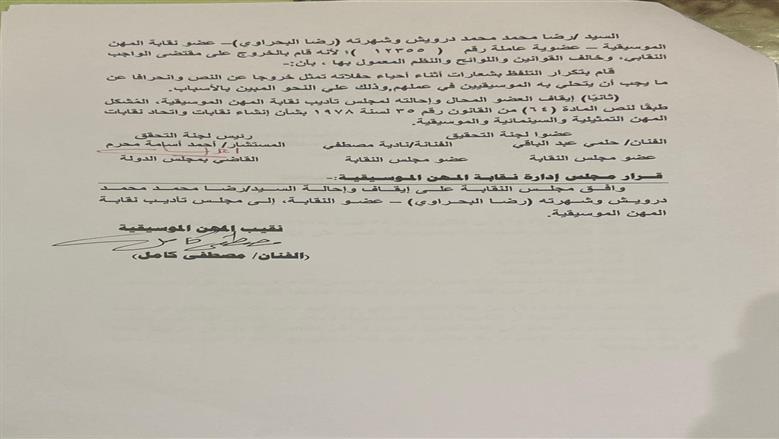 السيد /رضا محمد محمد درويش وشهرته (رضا البحراوي)– عضو نقابة المهن
الموسيقية – عضوية عاملة رقم ( ١٢٣٥٥ )؛ لأنه قام بالخروج على مقتضى الواجب
النقابي، وخالف القوانين واللوائح والنظم المعمول بها ، بأن:-
قام بتكرار التلفظ بشعارات أثناء أحياء حفلاته تمثل خروجا عن النص وانحرافا عن
ما يجب أن يتحلي به الموسيقيين في عملهم,وذلك علي النحو المبين بالأسباب.
(ثانيًا) إيقاف العضو المحال وإحالته لمجلس تأديب نقابة المهن الموسيقية، المُشكل
طبقا لنص المادة (٦٤) من القانون رقم ٣٥ لسنة ١٩٧٨ بشأن إنشاء نقابات واتحاد نقابات
المهن التمثيلية والسينمائية والموسيقية.
عضوا لجنة التحقيق رئيس لجنة التحقق
الفنان/ حلمي عبد الباقي الفنانة/نادية مصطفي المستشار/ أحمد أسامة محرم
عضو مجلس النقابة عضو مجلس النقابة القاضي بمجلس الدولة
قرار مجلس إدارة نقابة المهن الموسيقية:-
وافق مجلس النقابة على إيقاف وإحالة السيد/رضا محمد محمد
درويش وشهرته (رضا البحراوي) – عضو النقابة، إلى مجلس تأديب نقابة
المهن الموسيقية.
نقيب المهن الموسيقية
(الفنان/ مصطفى كامل)